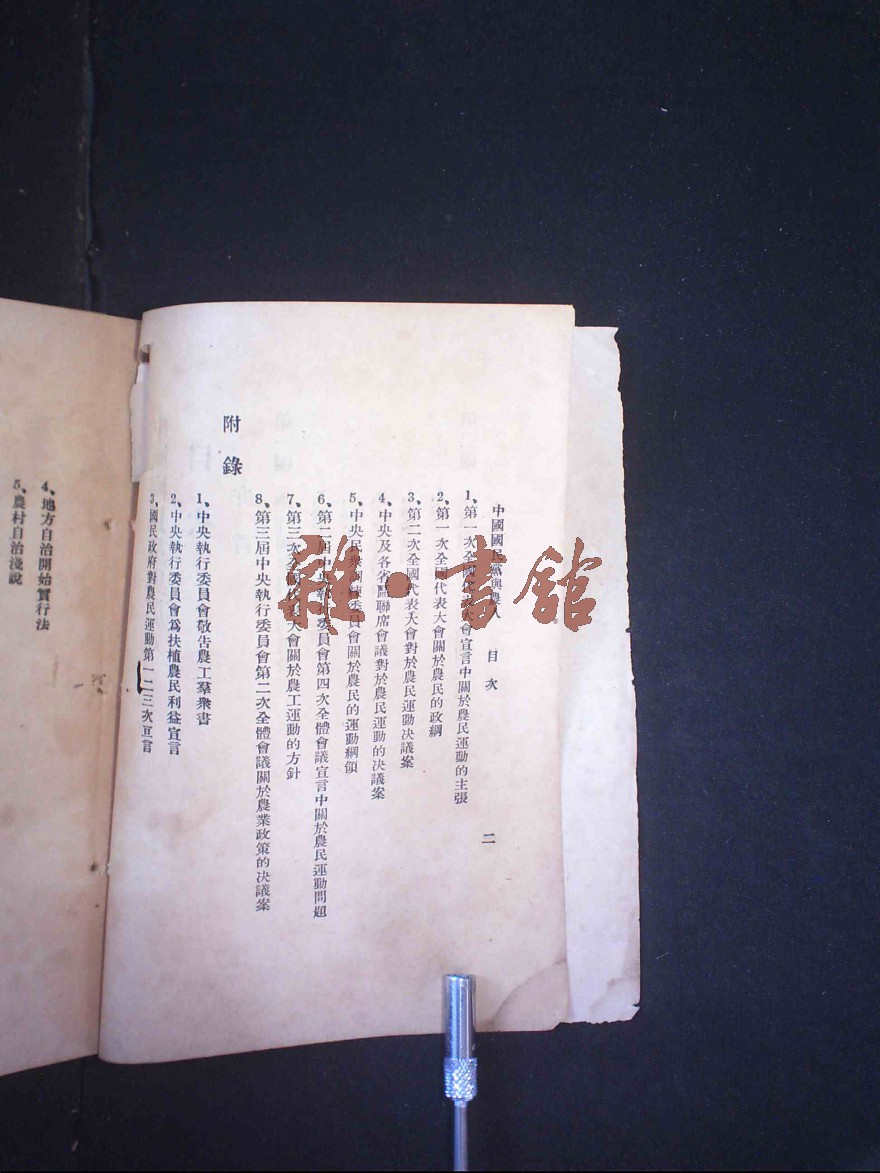 中國國民黨與農人　目次　二
1、第一次全國代表大會宣言中關於農民運動的主張
2、第一次全國代表大會關於農民的政綱
3、第二次全國代表大會對於農民運動決議案
4、中央及各省區聯席會議對於農民運動的決議案
5、中央民衆訓練委員會關於農民的運動綱領
6、第二屆中央執行委員會第四次全體會議宣言中關於農民運動問題
7、第三次全國代表大會關於農工運動的方針
8、第三屆中央執行委員會第二次全體會議關於農業政策的決議案
附錄
1、中央執行委員會敬告農工羣衆書
2、中央執行委員會爲扶植農民利益宣言
3、國民政府對農民運動第一二三次宣言
4、地方自治開始實行法
5、農村自治淺說
雜·書館